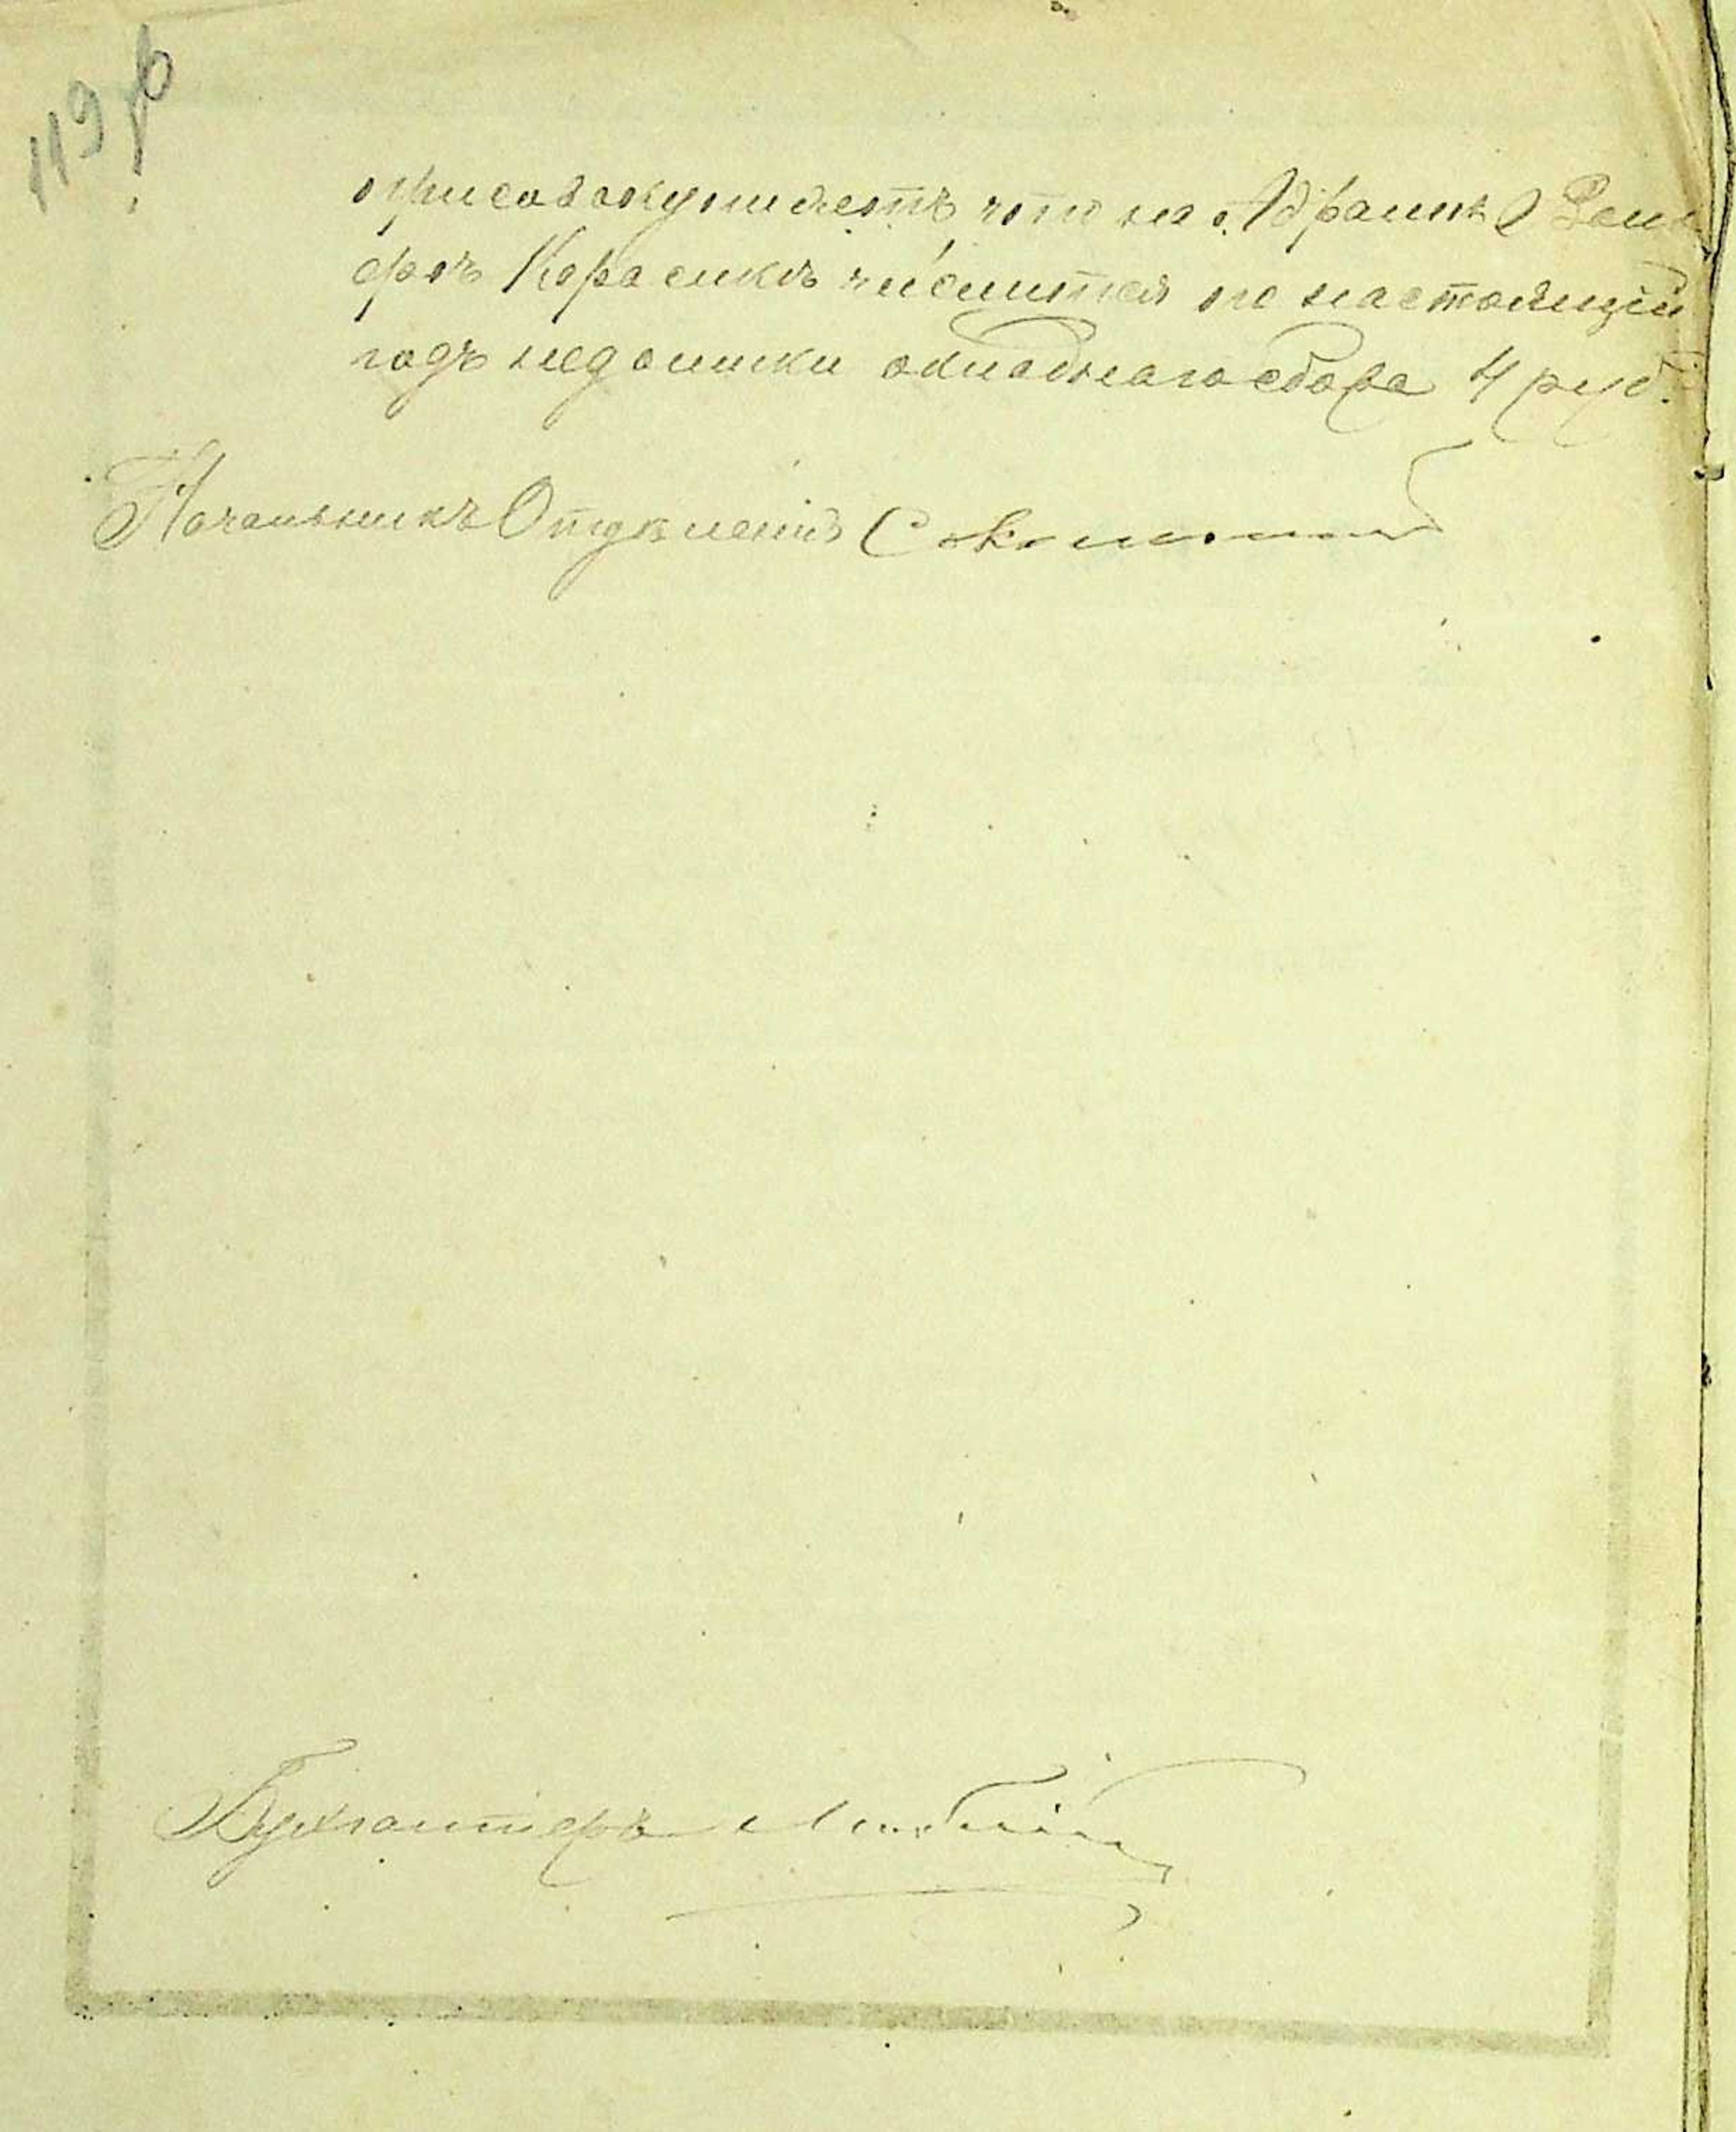 119 об
присовокупляетъ что на Абрамѣ
Карасикѣ числится по настоящій
годъ недоимки окладнаго сбора 4 руб.
Начальникъ Отдѣленія
Бухгалтеръ